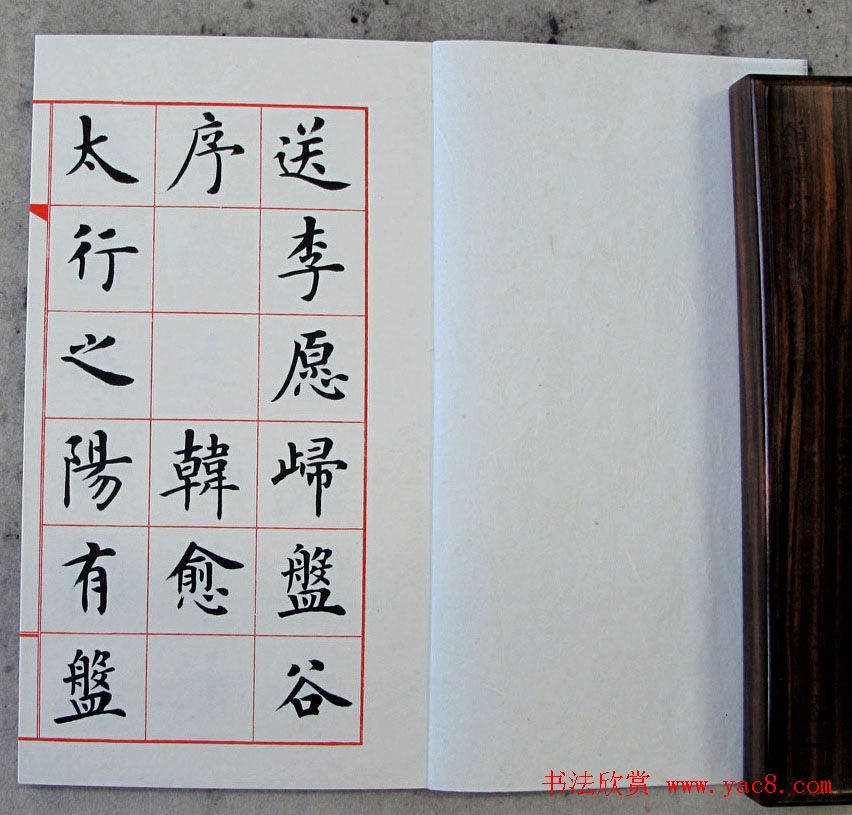 送李愿歸盤谷
序韓愈
太行之陽有盤
书法欣赏 www.yac8.com